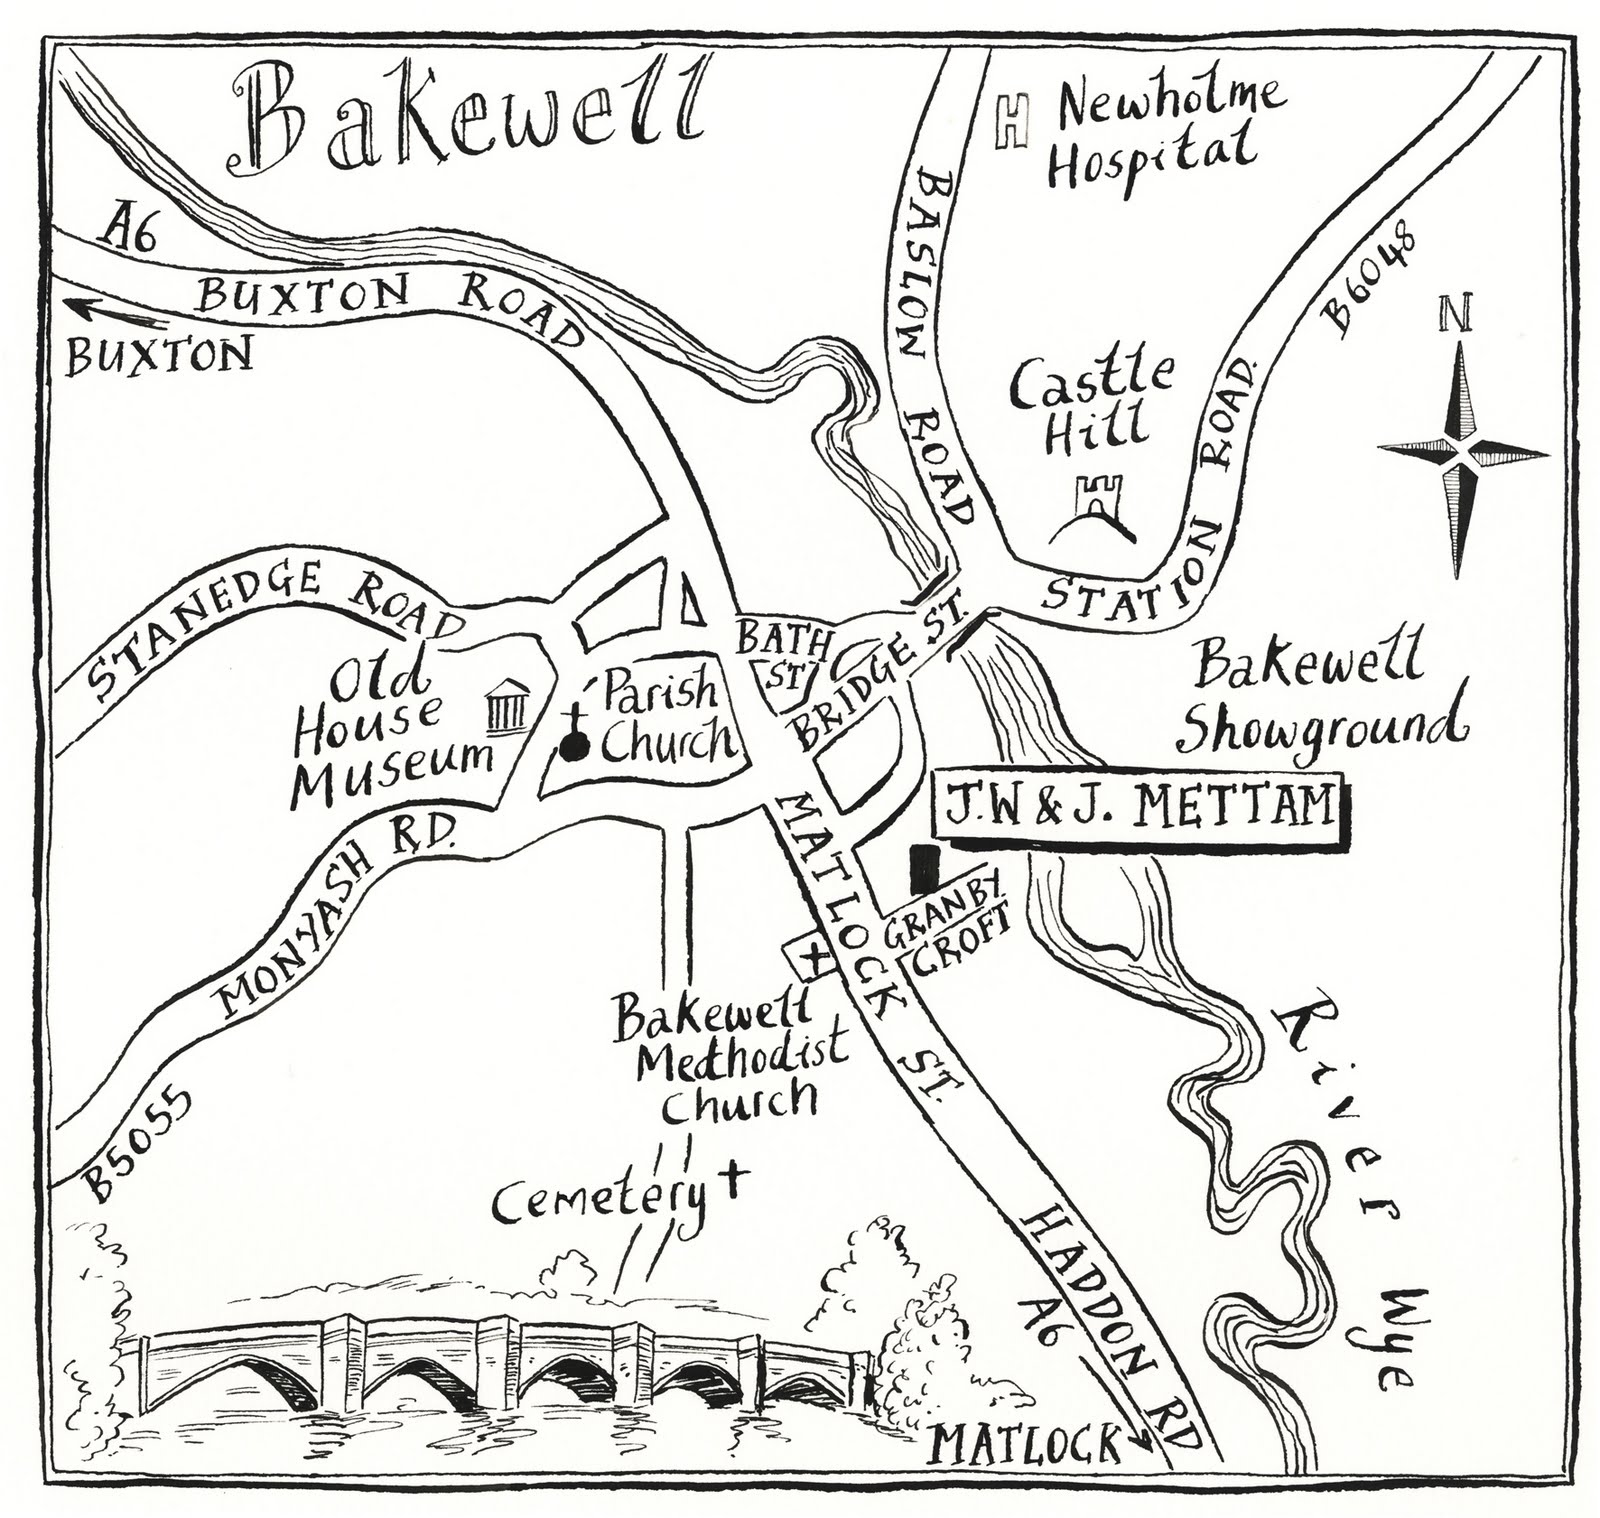 Bakewell
H Newholme
Hospital
A6
BUXTON ROAD
BUXTON
BASLOW ROAD
B6048
N
Castle
Hill
STATION ROAD.
STANEDGE ROAD
Old
House
Museum
Parish
Church
BATH
ST
BRIDGE ST.
Bakewell
Showground
J.W & J. METTAM
MONYASH RD.
MATLOCK ST.
GRANBY
CROFT
B5055
Bakewell
Methodist
Church
Cemetery
River Wye
HADDON RD
A6
MATLOCK